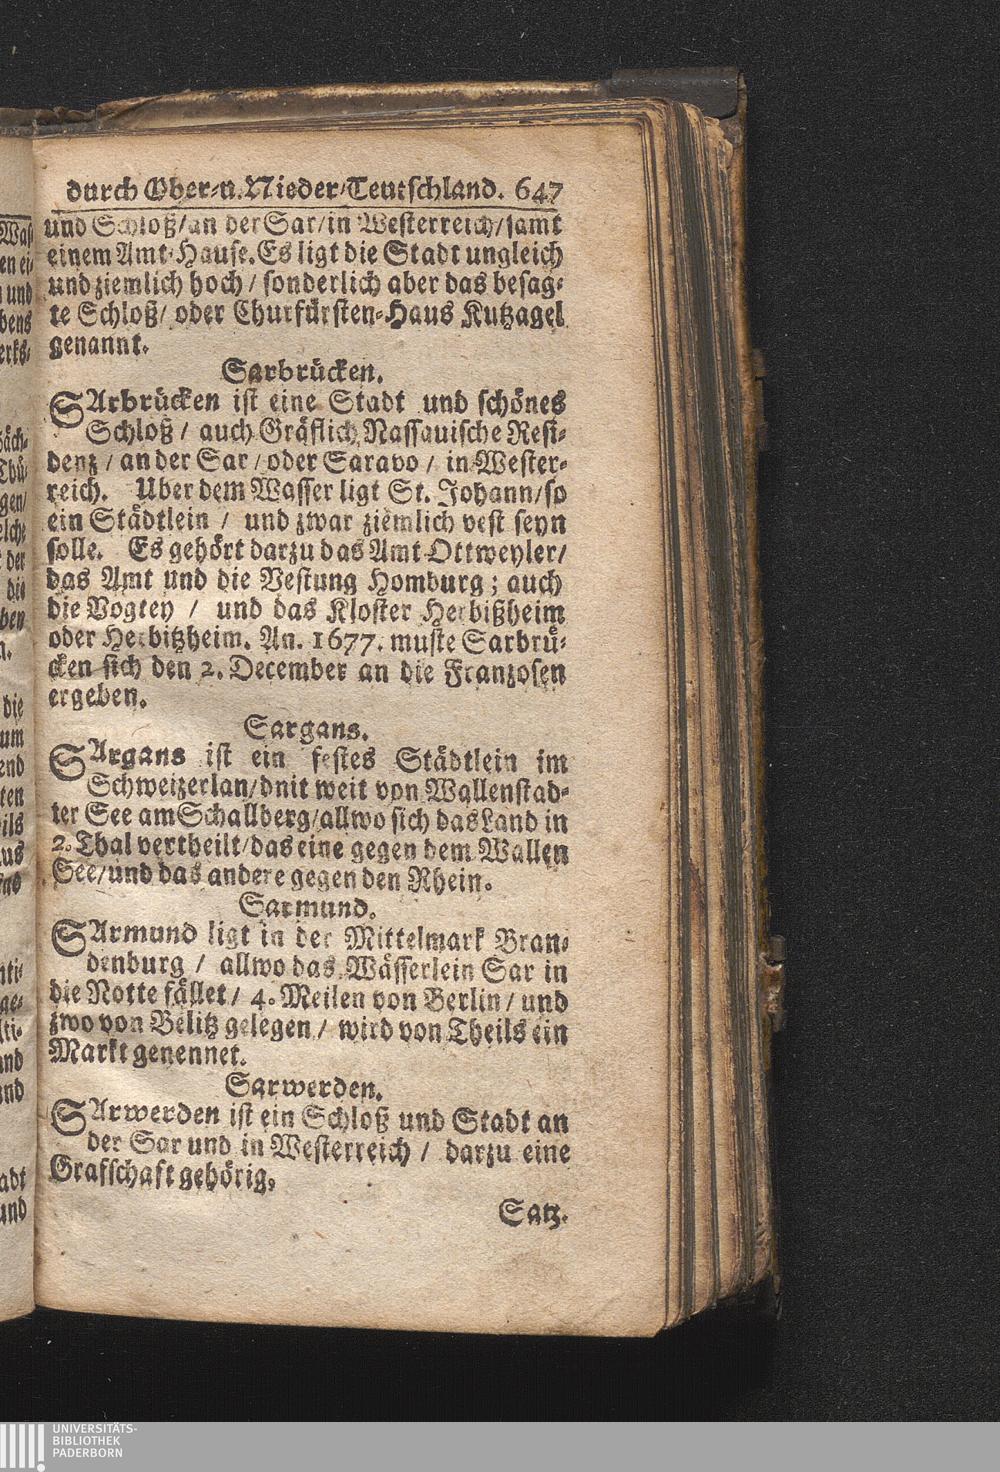 durch Ober-u. Nieder-Teutschland. 647
und Schloß/an der Sar/in Westerreich/samt
einem Amt-Hause. Es ligt die Stadt ungleich
und ziemlich hoch / sonderlich aber das besag-
te Schloß/ oder Churfürsten-Haus Kutzagel
genannt.
Sarbrücken.
SArbrücken ist eine Stadt und schönes
Schloß / auch Gräflich Nassauische Resi-
denz / an der Sar / oder Saravo / in Wester-
reich. Uber dem Wasser ligt St. Johann/so
ein Städtlein / und zwar ziemlich vest seyn
solle. Es gehört darzu das Amt Ottweyler/
das Amt und die Vestung Homburg; auch
die Vogtey / und das Kloster Herbißheim
oder Herbitzheim. An. 1677. muste Sarbrü-
cken sich den 2. December an die Franzosen
ergeben.
Sargans.
SArgans ist ein festes Städtlein im
Schweizerlan/dnit weit von Wallenstad-
ter See am Schallberg/allwo sich das Land in
2. Thal vertheilt/das eine gegen dem Wallen
See/und das andere gegen den Rhein.
Sarmund.
SArmund ligt in der Mittelmark Bran-
denburg / allwo das Wässerlein Sar in
die Notte fället/ 4. Meilen von Berlin / und
zwo von Belitz gelegen / wird von Theils ein
Markt genennet.
Sarwerden.
SArwerden ist ein Schloß und Stadt an
der Sar und in Westerreich / darzu eine
Grafschaft gehörig.
Satz-
UNIVERSITÄTS-
BIBLIOTHEK
PADERBORN